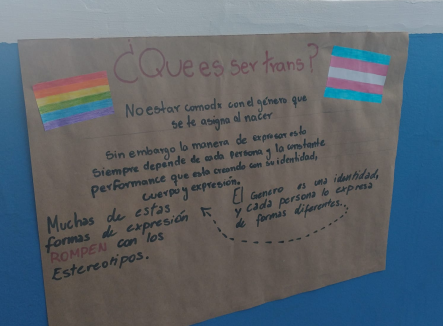 ¿Que es ser trans?
No estar comodx con el género que
se te asigna al nacer
Sin embargo la manera de expresar esto
siempre depende de cada persona y la constante
performance que esta creando con su identidad,
cuerpo y expresión.
El Genero es una identidad,
y cada persona lo expresa
de formas diferentes.
Muchas de estas
formas de expresión
ROMPEN con los
Estereotipos.